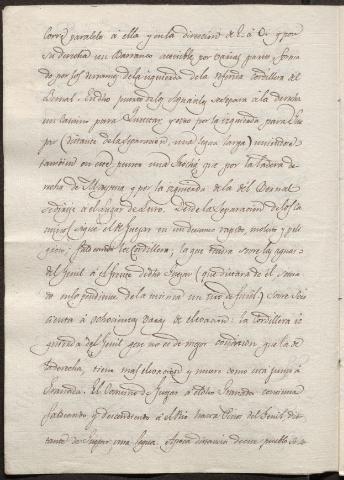 Corre paralelo á ella y en la direccion de E. á O. y por
su derecha un Barranco accesible por varias partes forma
do por los derrames de la izquierda de la referida cordillera del
Bernal. En dho punto de los se separa á la derecha
un Camino para y otro por la izquierda para
(distante de la separacion una legua larga) uniendose
tambien en este punto una Senda que por la ladera de
recha de Maytena y por la izquierda de la del Bernal
se dirije á el Lugar de Desde la separacion de los Ca
minos sigue el de Guejar en un descenso rapido, molesto y peli
groso, faldeando la Cordillera, la que sobre las aguas
del Genil á el frente de dho Guejar (que dictara de él
en la pendiente de la misma un tiro de fusil) sobre seis
cientas á ochocientas varas de elevacion: la Cordillera iz
quierda del Genil que no es de mejor condicion que la de
la derecha, tiene mas elevacion y muere como una junto á
Granada. El Camino de Guejar á dho Granada continua
faldeando y descendiendo á el Rio hacia Pinos del Genil, dis
tante de Guejar una legua. A poca distancia de este pueblo se